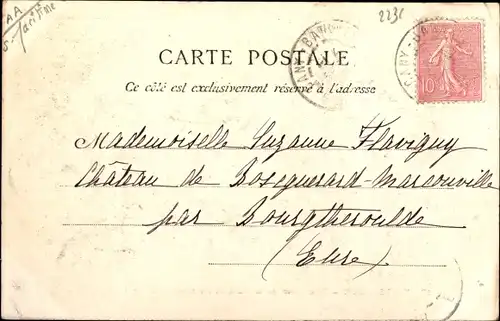 AA
S. Maritime
2231
CARTE POSTALE
Ce côté est exclusivement réservé à l'adresse
10
Mademoiselle Suzanne Flavigny
Château de Boscguerard-Marcouville
par Bourgtheroulde
(Eure)